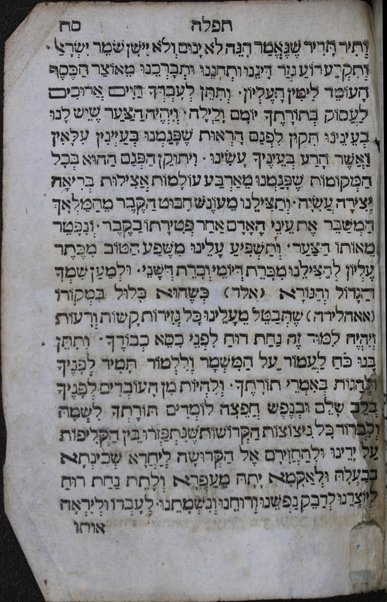 תפלה סח
ותיר תדיר שנאמר הנה לא ינום ולא יישן שומר ישראל.
ותקרע רוע גזר דיננו ותחננו ותברכנו מאוצר הכסף
העומד לימין העליון. ותתן לעבדך חיים ארוכים
לעסוק בתורתך יומם ולילה. ויהיה הצער שיש לנו
בעינינו תקון לפגם הראות שפגמנו בעיינין עלאין
ואשר הרע בעיניך עשינו. ויתוקן הפגם ההוא בכל
המקומות שפגמנו מארבע עולמות אצילות בריאה
יצירה עשיה. ותצילנו מעונש חבוט הקבר מהמלאך
המשבר את עיני האדם אחר פטירתו בקבר. ונפטר
מאותו הצער. ותשפיע עלינו משפע הטוב מכתר
עליון להצילנו מכרת דיומי וכרת דשני. ולמען שמך
הגדול והנורא (אלד) כשהוא כלול במקורו
(אאהלידה) שתבטל מעלינו כל גזירות קשות ורעות
ויהיה למוד זה נחת רוח לפני כסא כבודך. ותתן
בנו כח לעמוד על המשמר וללמוד תמיד לפניך
ולהגות באמרי תורתך. ולהיות מן העובדים לפניך
בלב שלם ובנפש חפצה לומדים תורתך לשמה
ולברור כל ניצוצות הקדושות שנתפזרו בין הקליפות
על ידינו ולהחזירם אל הקדושה ליחדא שכינתא
בבעלה ולאקמא יתה מעפרא ולתת נחת רוח
ליוצרנו לדבק נפשנו ורוחנו ונשמתנו לעבדו וליראה
אותו